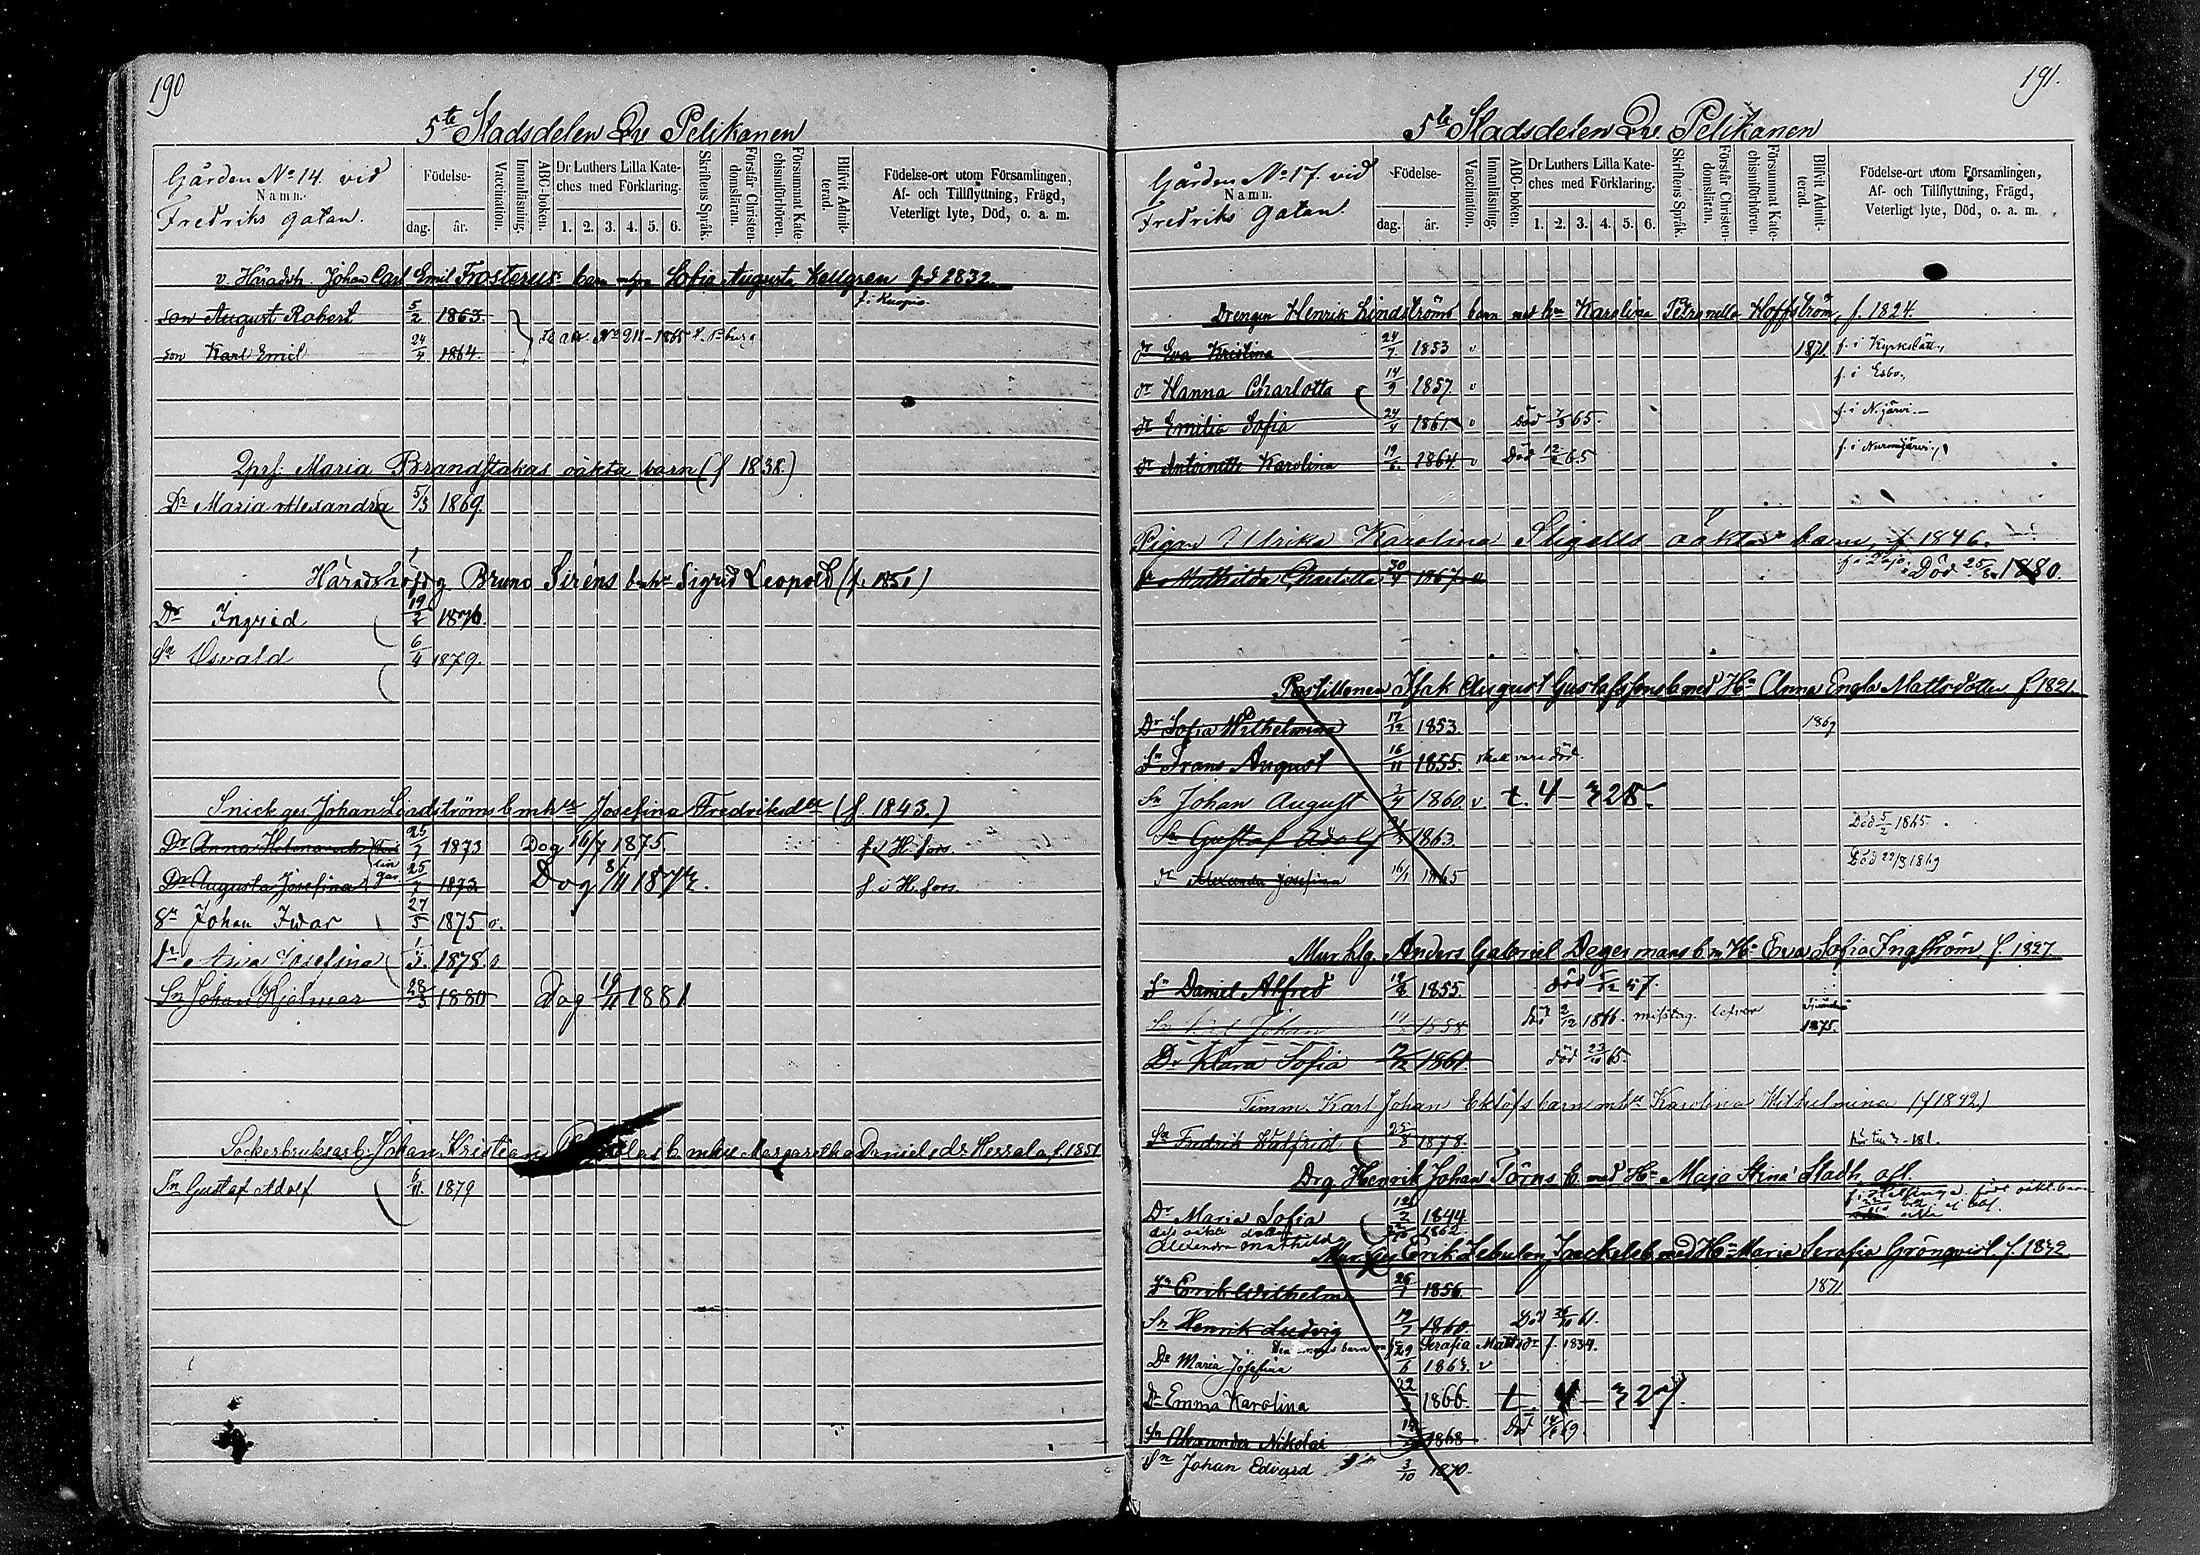 190
5te Stadsdelen Qv Pelikanen
Gården No 14. vid
Namn.
Fredriks gatan.
Födelse-
dag. år.
Vaccination.
Innanläsning.
ABC-boken.
Dr Luthers Lilla Kate-
ches med Förklaring.
1. 2. 3. 4. 5. 6.
Skriftens Språk.
Förstår Christen-
domsläran.
Försummat Kate-
chismiförhören.
Blifvit Admit-
terad.
Födelse-ort utom Församlingen,
Af- och Tillflyttning, Frägd,
Veterligt lyte, Död, o. a. m.
v. Häradsh. Johan Carl Emil Frosterus barn Sofia Augusta Kellgren fd 1832
son August Robert 5/2 1863. f. i Kuopio.
son Karl Emil 24/4 1864. No 211-1865
Maria Brandstakas oäkta barn (f 1838)
Dr Maria Alexandra 5/3 1869.
Häradshöfdg Bruno Siréns bmhu Sigrid Leopold (f. 1851)
Dr Ingrid 19/2 1876
Sn Osvald 6/4 1879.
Snick ges Johan Lindströms bmhu Josefina Fredriksdtr (f. 1843.)
Dr Anna Helena 25/7 1873 Dog 16/7 1875. f. i H:fors.
Dr Augusta Josefina 25/7 1873 Dog 8/11 187 f. i H:fors.
Sn Johan Ivar 27/5 1875 v.
Dr Josefina 1/3 1878 v.
Sn Johan Hjalmar 28/3 1880 Dog 19/11 1881
Sockerbruksarb. Johan Kristian bmhu Margaretha Danielsdr Herrala f. 1851
Sn Gustaf Adolf 6/11. 1879
191.
5te Stadsdelen Qv. Pelikanen
Gården No 17. vid
Namn.
Fredriks gatan.
Födelse-
dag. år.
Vaccination.
Innanläsning.
ABC-boken.
Dr Luthers Lilla Kate-
ches med Förklaring.
1. 2. 3. 4. 5. 6.
Skriftens Språk.
Förstår Christen-
domsläran.
Försummat Kate-
chismiförhören.
Blifvit Admit-
terad.
Födelse-ort utom Församlingen,
Af- och Tillflyttning, Frägd,
Veterligt lyte, Död, o. a. m.
Drengen Henrik Lindströms barn med hn Karolina Petronella Hoffström, f. 1824.
dr Eva Kristina 24/7 1853 v 1871. f. i Kyrkslätt,
dr Hanna Charlotta 14/9 1857. v f. i Esbo.
dr Emilia Sofia 24/4 1861 v död 7/3 65. f. i N.järvi.
dr Antoinette Karolina 19/ 1864 v Död 12/ 65 f. i Nurmijärvi,
Pigan Ulrika Karolina Stigells oäkta barn, f 1846.
dr Mathilda Charlotta 30/4 1867. Död 25/ 1880.
Postillonen Isak August Gustafssons b med Hn Anna Engla Mattsdotter f 1821
Dr Sofia Wilhelmina 17/12 1853. 1869
Sn Frans August 16/11 1855. skall vara död.
Sn Johan August 3/4 1860. v. t. 4 - 328.
Sn Gustaf Adolf 1863. Död 5/2 1865.
dr Alexandra Josefina 16/1 1865 Död 22/8 1869
Mur.hlg Anders Gabriel Degermans b m Hn Eva Sofia Ingström f 1827.
Sn Daniel Alfred 19/8 1855. död 57.
Sn Johan 1858 död 2/12 1866. misstag. lefver 1875.
Dr Klara Sofia 1861 död 23/10 65.
Timm. Karl Johan Eklöfs barn mhu Karolina Wilhelmina (f 1842)
Sn Fredrik Walfrid 25/8 1878.
Drg Henrik Johan Törns b. med Hn Maja Stina Stadh afl.
Dr Maria Sofia 12/2 1844
dess oäkta dotter
Alexandra Mathilda 1862
Erik Zebulon b. med Hn Maria Serafia Grönqvist f. 1832
Sn Erik Wilhelm 26/1 1856 1871
Sn Henrik Ludvig 19/7 1860 Död 26/10 61.
barn Serafia Mattsdr f. 1834.
Dr Maria Josefina 29/6 1864. v
Dr Emma Karolina 22/ 1866. t. 4 - 327.
Sn Alexander Nikolai 1868 Död 69.
Sn Johan Edvard 3/10 1870.